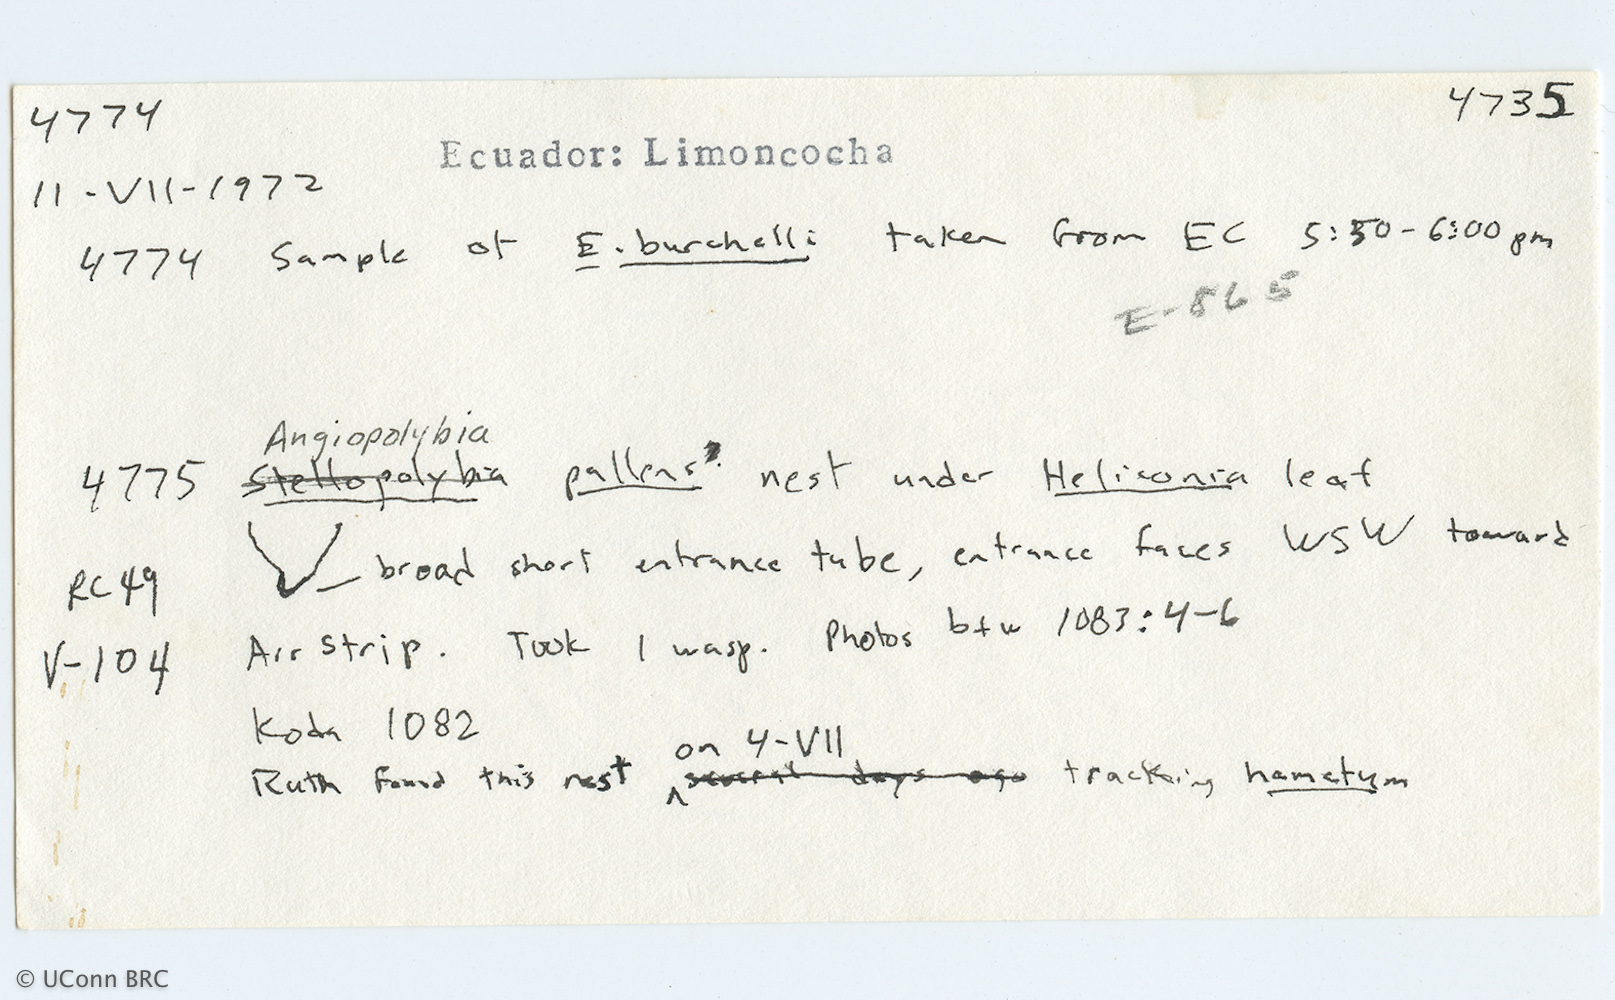 4774
4735
Ecuador: Limoncocha
11-VII-1972
4774 Sample of E. burchelli taken from EC 5:50-6:00 pm
E-865
Angiopolybia
4775 Stellopolybia pallens? nest under Heliconia leaf
RC 49 broad short entrance tube, entrance faces WSW toward
V-104 Air Strip. Took 1 wasp. Photos b+w 1083:4-6
Koda 1082
on 4-VII
Ruth found this nest several days ago tracking hamatum
© UConn BRC